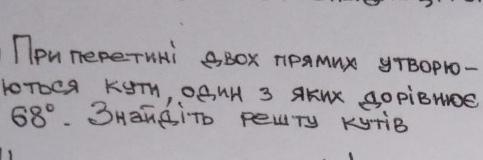 При перетині двох прямих утворю-
ються кути, один з яких дорівнює
68°. Знайдіть решту кутів